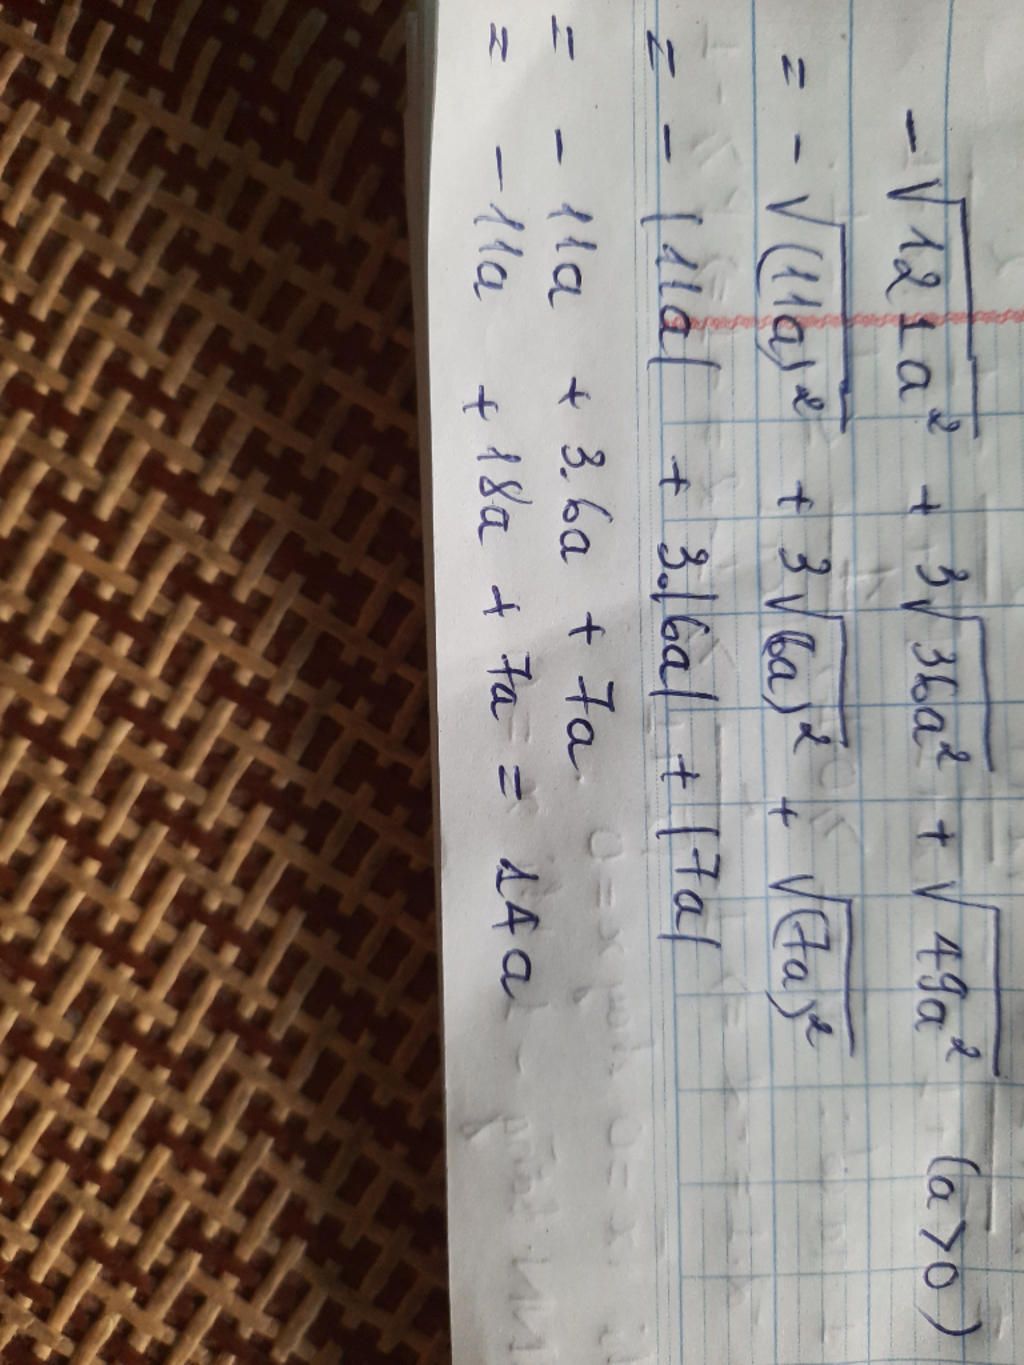 -√121a² + 3√36a² + √49a² (a>0)
= -√(11a)² + 3√(6a)² + √(7a)²
= -|11a| + 3.|6a| + |7a|
= -11a + 3.6a + 7a
= -11a + 18a + 7a = 14a